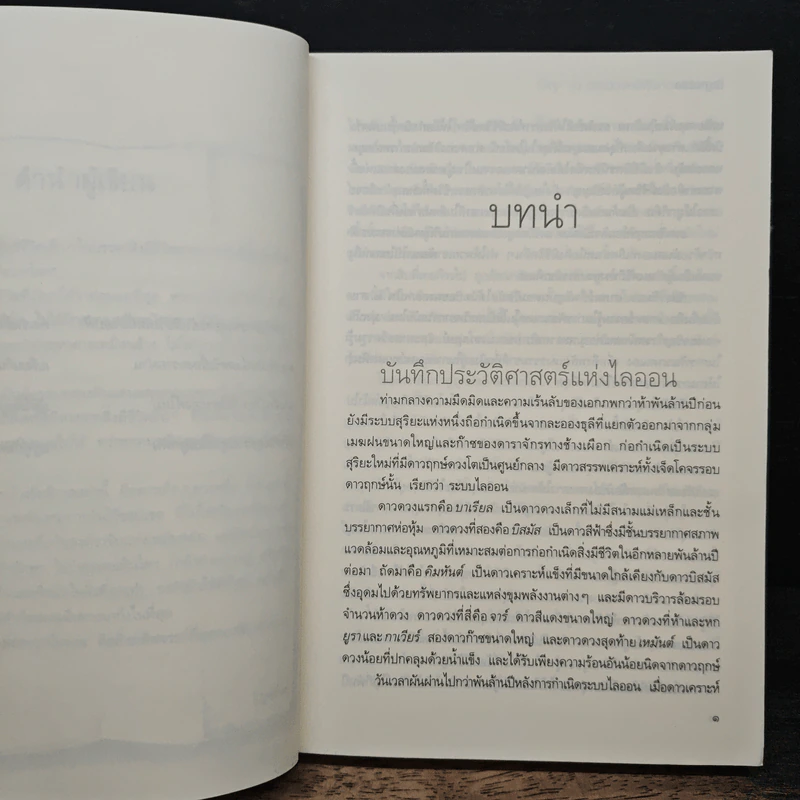 บทนำ
บันทึกประวัติศาสตร์แห่งไลออน
ท่ามกลางความมืดมิดและความเร้นลับของเอกภพกว่าห้าพันล้านปีก่อน
ยังมีระบบสุริยะแห่งหนึ่งถือกำเนิดขึ้นจากละอองธุลีที่แยกตัวออกมาจากกลุ่ม
เมฆฝนขนาดใหญ่และก๊าซของดาราจักรทางช้างเผือก ก่อกำเนิดเป็นระบบ
สุริยะใหม่ที่มีดาวฤกษ์ดวงโตเป็นศูนย์กลาง มีดาวสรรพเคราะห์ทั้งเจ็ดโคจรรอบ
ดาวฤกษ์นั้น เรียกว่า ระบบไลออน
ดาวดวงแรกคือ บาเรียล เป็นดาวดวงเล็กที่ไม่มีสนามแม่เหล็กและชั้น
บรรยากาศห่อหุ้ม ดาวดวงที่สองคือ บิสมัส เป็นดาวสีฟ้าซึ่งมีชั้นบรรยากาศสภาพ
แวดล้อมและอุณหภูมิที่เหมาะสมต่อการก่อกำเนิดสิ่งมีชีวิตในอีกหลายพันล้านปี
ต่อมา ถัดมาคือ คิมหันต์ เป็นดาวเคราะห์แข็งที่มีขนาดใกล้เคียงกับดาวบิสมัส
ซึ่งอุดมไปด้วยทรัพยากรและแหล่งขุมพลังงานต่างๆ และมีดาวบริวารล้อมรอบ
จำนวนห้าดวง ดาวดวงที่สี่คือ จาร์ ดาวสีแดงขนาดใหญ่ ดาวดวงที่ห้าและหก
ยูรา และ กาเวียร์ สองดาวก๊าซขนาดใหญ่ และดาวดวงสุดท้าย เหมันต์ เป็นดาว
ดวงน้อยที่ปกคลุมด้วยน้ำแข็ง และได้รับเพียงความร้อนอันน้อยนิดจากดาวฤกษ์
วันเวลาผันผ่านไปกว่าพันล้านปีหลังการกำเนิดระบบไลออน เมื่อดาวเคราะห์
๑